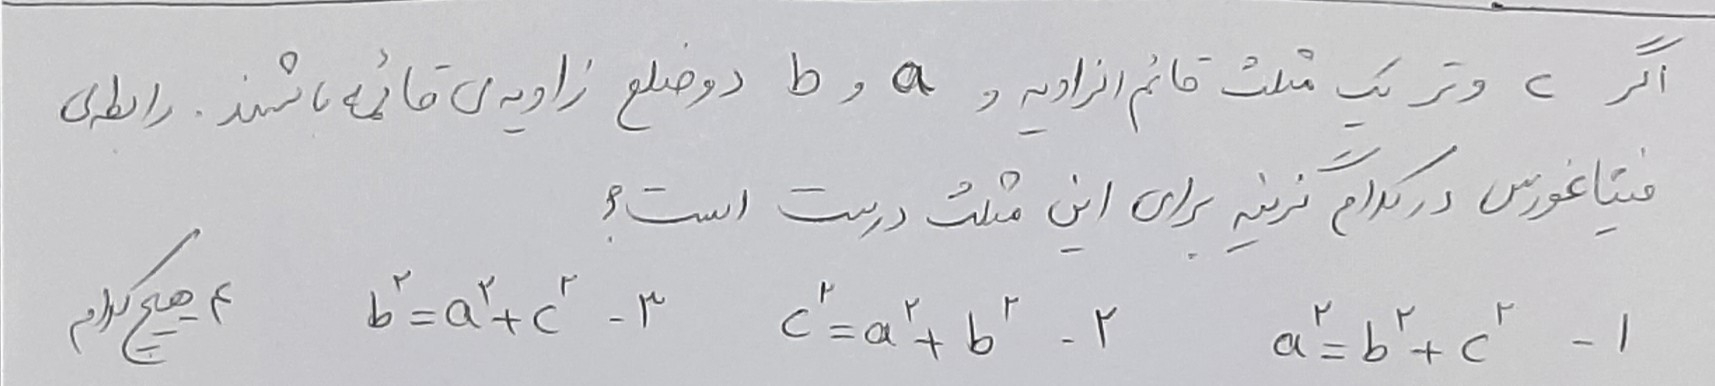 اگر c وتر یک مثلث قائم الزاویه و a و b دو ضلع زاویه ی قائمه باشند. رابطه ی
فیثاغورس در کدام گزینه برای این مثلث درست است؟
۱- a²=b²+c² ۲- c²=a²+b² ۳- b²=a²+c² ۴- هیچ کدام